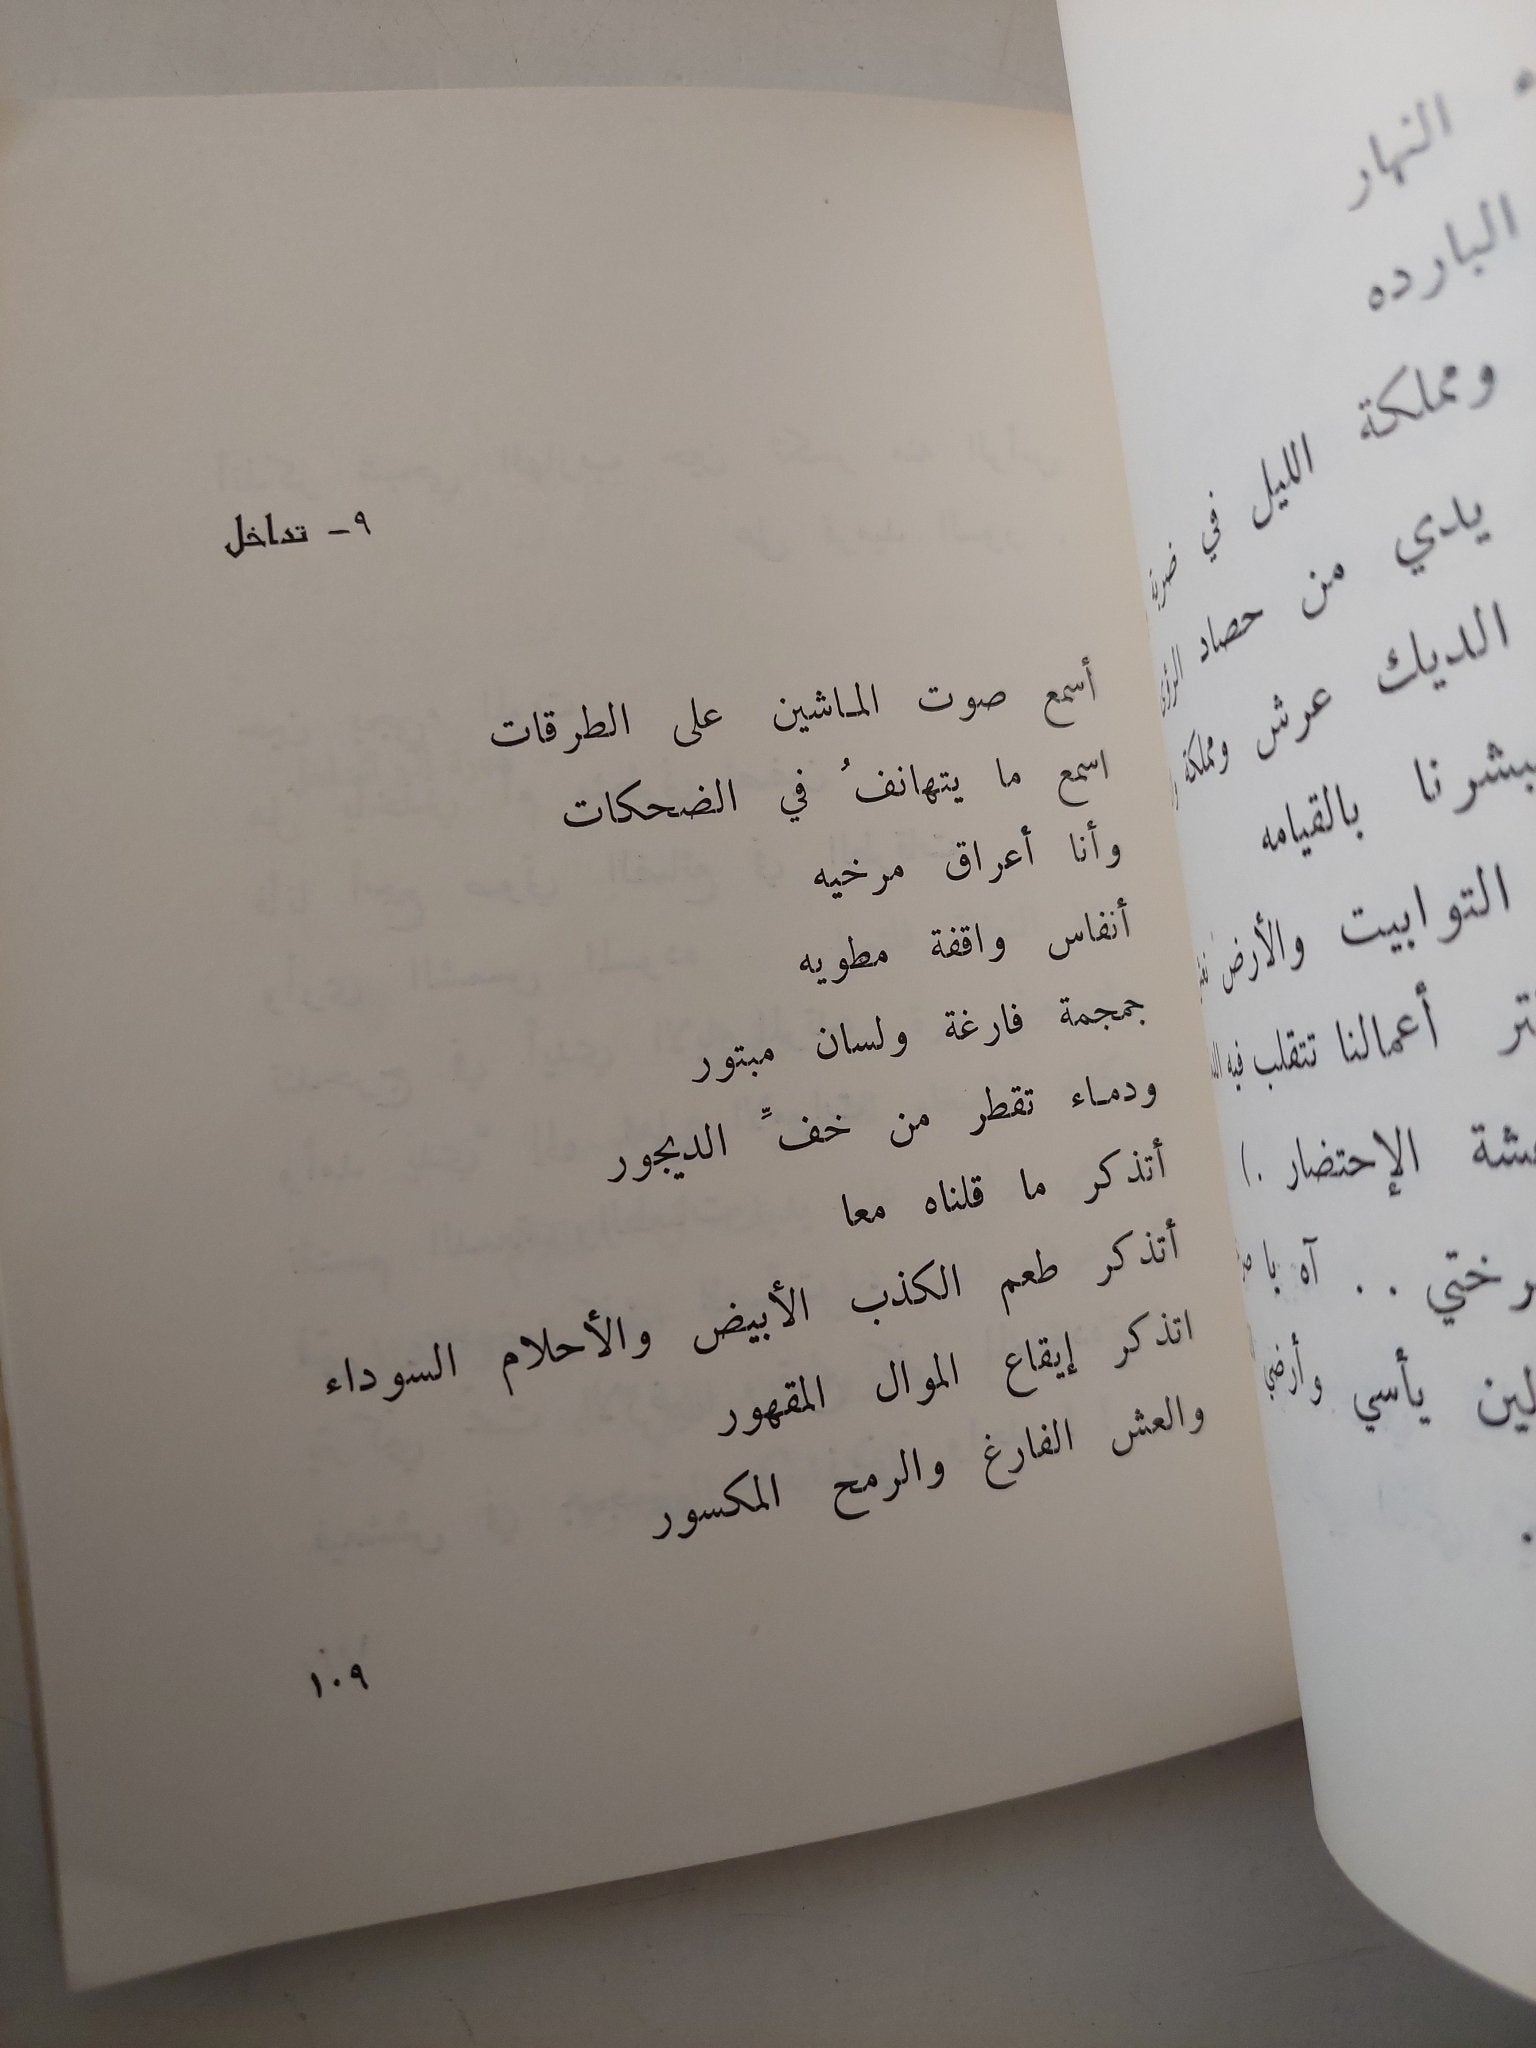 ٩- تداخل
أسمع صوت الماشين على الطرقات
اسمع ما يتهانفُ في الضحكات
وأنا أعراق مرخيه
أنفاس واقفة مطويه
جمجمة فارغة ولسان مبتور
ودماء تقطر من خفِّ الديجور
أتذكر ما قلناه معا
أتذكر طعم الكذب الأبيض والأحلام السوداء
اتذكر إيقاع الموال المقهور
والعش الفارغ والرمح المكسور
١٠٩
النهار
البارده
ومملكة الليل في ضربة
يدي من حصاد الرؤى
الديك عرش ومملكة
بالقيامه
التوابيت والأرض
أعمالنا تتقلب فيه
الإحتضار .)
. . آه يا
يأسي وأرضي